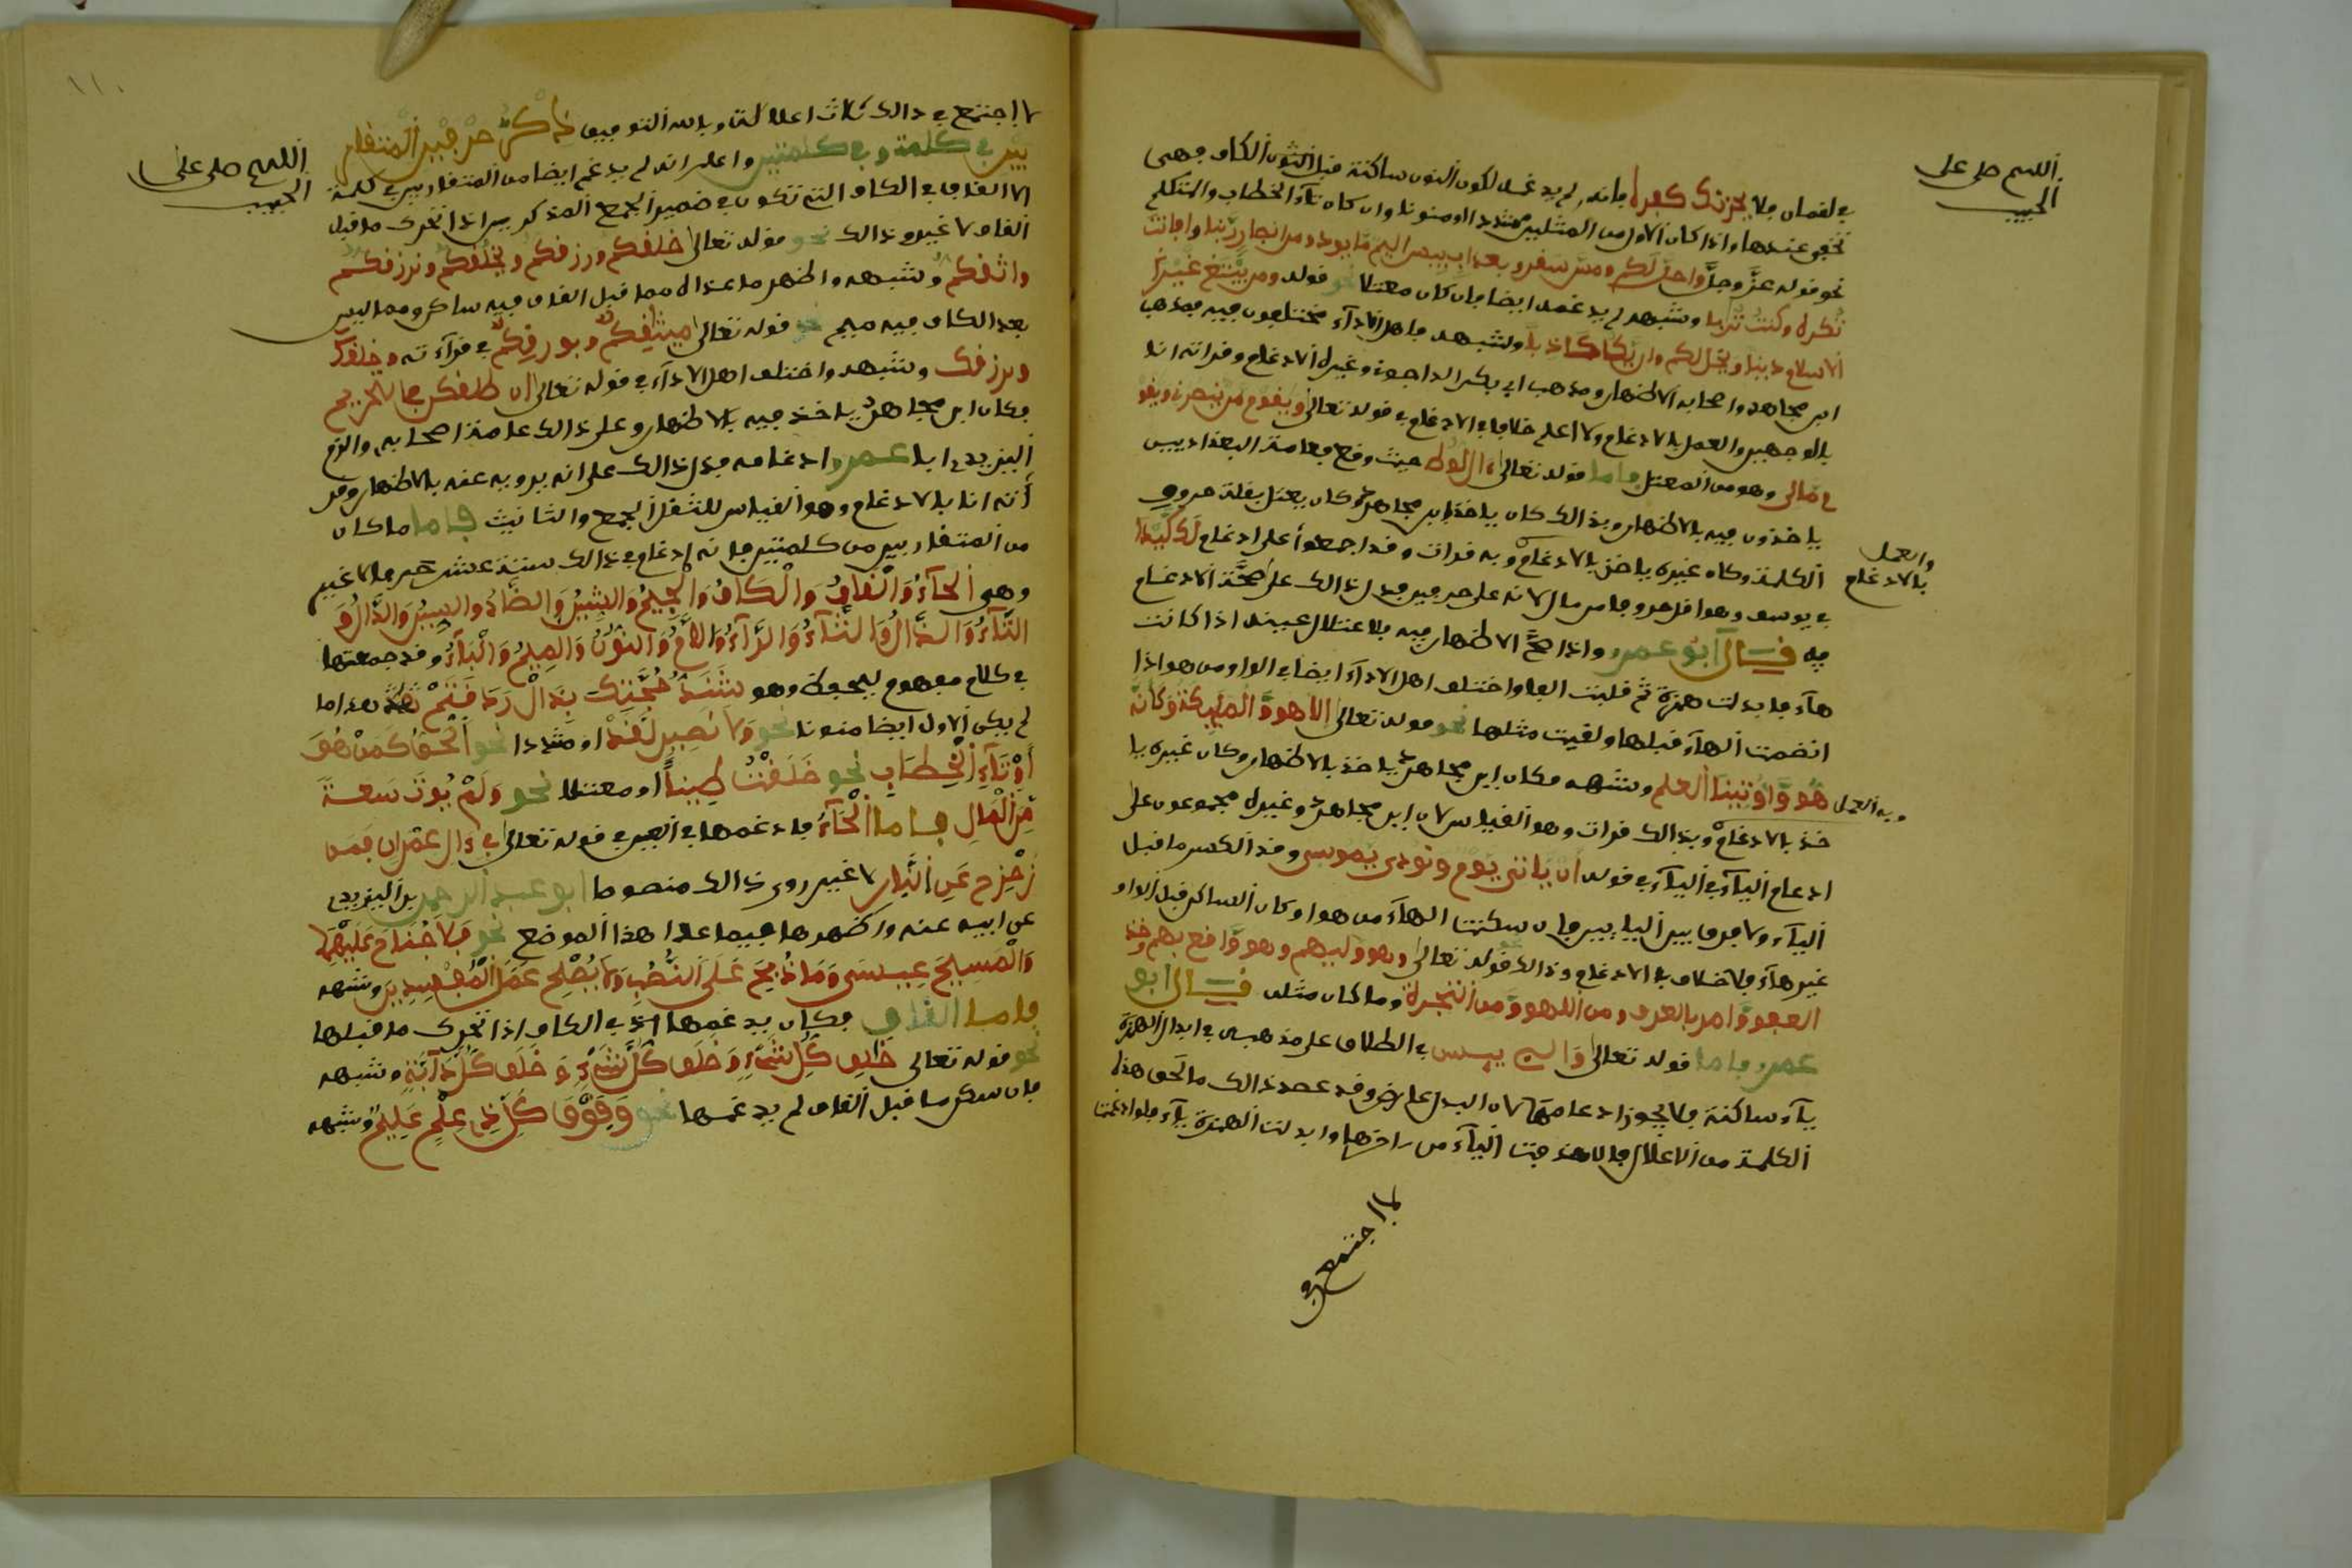 اللهم صل على
الحبيب
في لقمان فلا يحزنك كفره فإنه لم يدغمه لكون النون ساكنة قبل الكاف فهى
تخفى عندها وإذا كان الأول من المثلين مشددا أو منونا وإن كان تآء الخطاب والمتكلم
نحو قوله عز وجل وأحل لكم ومس سقر وبعذاب بييس اليم ما يودوا من أنصار ربنا وأفانت
تكره وكنت ترابا وشبهه لم يدغمه أيضا فإن كان معتلا نحو قوله ومن يبتغ غير
الاسلام دينا ويخل لكم وإن يك كاذبا وشبهه فأهل الأدآء مختلفون فيه فمذهب
ابن مجاهد وأصحابه الاظهار ومذهب أبي بكر الداجونى وغيره الادغام وقرأته أنا
بالوجهين والعمل بالادغام ولا أعلم خلافا في الادغام في قوله تعالى ويقوم من ينصرني ويقوم
والعمل
بالادغام
ما لي وهو من المعتل فأما قوله تعالى ءال لوط حيث وقع فعامة البغداديين
ياخذون فيه بالاظهار وبذالك كان ياخذ ابن مجاهد وكان يعتل بقلة حروف
الكلمة وكان غيره ياخذ بالادغام وبه قرات وقد أجمعوا على ادغام لك كيدا
في يوسف وهو أقل حروفا من ءال لأنه على حرفين فدل ذالك على صحة الادغام
فيه قال أبو عمرو وإذا صح الاظهار فيه فلاعتلال عينه إذا كانت
هآء فابدلت همزة ثم قلبت ألفا واختلف أهل الأدآء أيضا في الواو من هو إذا
انضمت الهآء قبلها ولقيت مثلها نحو قوله تعالى إلا هو والمليكة وكأنه
هو وأوتينا العلم وشبهه فكان ابن مجاهد ياخذ بالاظهار وكان غيره يا
وبه العمل
خذ بالادغام وبذالك قرات وهو القياس لأن ابن مجاهد وغيره مجموعون على
ادغام اليآء في اليآء في قوله أن ياتي يوم ونودي يموسى وقد انكسر ما قبل
اليآء ولا فرق بين اليايين فإن سكنت الهآء من هو أو كان الساكن قبل الواو
غير هآء فلا خلاف في الادغام وذالك نحو قوله تعالى وهو وليهم وهو واقع بهم وخذ
العفو وامر بالعرف ومن اللهو ومن التجرة وما كان مثله قال أبو
عمرو فأما قوله تعالى والـي ييسن في الطلاق على مذهبه في ابدال الهمزة
يآء ساكنة فلا يجوز ادغامها لأن البدل عارض وقد عضد ذالك ما لحق هذه
الكلمة من الاعلال بأن حذفت اليآء من ءاخرها وابدلت الهمزة يآء فلو ادغمت
لاجتمع في
١١٠
اللهم صل على
الحبيب
لاجتمع في ذالك ثلاث اعلالات وبالله التوفيق ذكر الحرفين المتقار
بين في كلمة وفي كلمتين واعلم أنه لم يدغم أيضا من المتقاربين في كلمة
الا القاف في الكاف التي تكون في ضمير الجمع المذكرين إذا تحرك ما قبل
القاف لا غير وذالك نحو قوله تعالى خلقكم ورزقكم ويخلقكم ونرزقكم
واثقكم وشبهه واظهر ما عداه مما قبل القاف فيه ساكن ومما ليس
بعد الكاف فيه ميم نحو قوله تعالى ميثقكم وبورقكم في قرآءته وخلقك
ونرزقك وشبهه واختلف أهل الأدآء في قوله تعالى ان طلقكن في التحريم
فكان ابن مجاهد ياخذ فيه بالاظهار وعلى ذالك عامة أصحابه والزم
اليزيدي أبا عمرو ادغامه فدل ذالك على أنه يرويه عنه بالاظهار وقر
أته أنا بالادغام وهو القياس للثقل الجمع والتانيث فاما ما كان
من المتقاربين من كلمتين فإنه ادغم في ذالك ستة عشر حرفا لا غير
وهى الحآء والقاف والكاف والجيم والشين والضاد والسين والدال و
التآء والذال والثآء والرآء واللام والنون والميم والبآء وقد جمعتها
في كلام مفهوم ليحفظ وهو سنشد حجتك بذل رض قثم هذا ما
لم يكن الأول أيضا منونا نحو ولا نصير لقد أو مشددا نحو الحق كمن هو
أو تآء الخطاب نحو خلقت طينا أو معتلا نحو ولم يوت سعة
من المال فاما الحآء فادغمها في العين في قوله تعالى في ءال عمران فمن
زحزح عن النار لا غير روى ذالك منصوصا أبو عبد الرحمن بن اليزيدي
عن أبيه عنه واظهرها فيما عدا هذا الموضع نحو فلا جناح عليهما
والمسيح عيسى وما ذبح على النصب ولا يصلح عمل المفسدين وشبهه
فاما القاف فكان يدغمها في الكاف إذا تحرك ما قبلها
نحو قوله تعالى خلق كل شيء وخلق كل شيء و خلق كل دآبة وشبهه
فإن سكن ما قبل القاف لم يدغمها نحو وفوق كل ذي علم عليم وشبهه